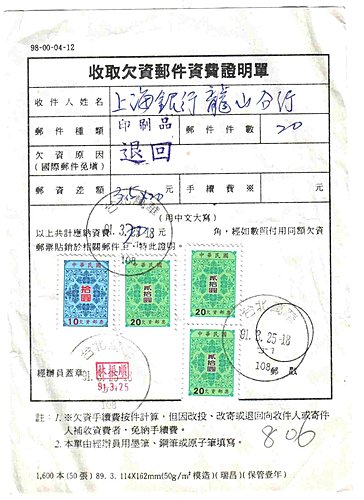 98-00-04-12
收取欠資郵件資費證明單
收件人姓名 上海銀行龍山分行
郵件種類 印刷品 郵件件數 20
欠資原因 退回
(國際郵件免填)
郵資差額 3.5x20 元 手續費※ 元
(用中文大寫)
以上共計應納資費 元 角,經如數照付用同額欠資
郵票貼銷於相關郵件上,特此證明。
中華民國
拾圓
10 欠資郵票
中華民國
貳拾圓
20 欠資郵票
中華民國
貳拾圓
20 欠資郵票
中華民國
貳拾圓
20 欠資郵票
台北
91.3.25-18
108
台北
91.3.25-18
108
台北
91.3.25-18
108
經辦員蓋章
91.3.25
郵戳
註:1.※欠資手續費按件計算,但因改投、改寄或退回向收件人或寄件
人補收資費者,免納手續費。
2.本單由經辦員用墨筆、鋼筆或原子筆填寫。
806
1,600本(50張) 89.3. 114X162mm(50g/m²模造)(瑞昌)(保管壹年)